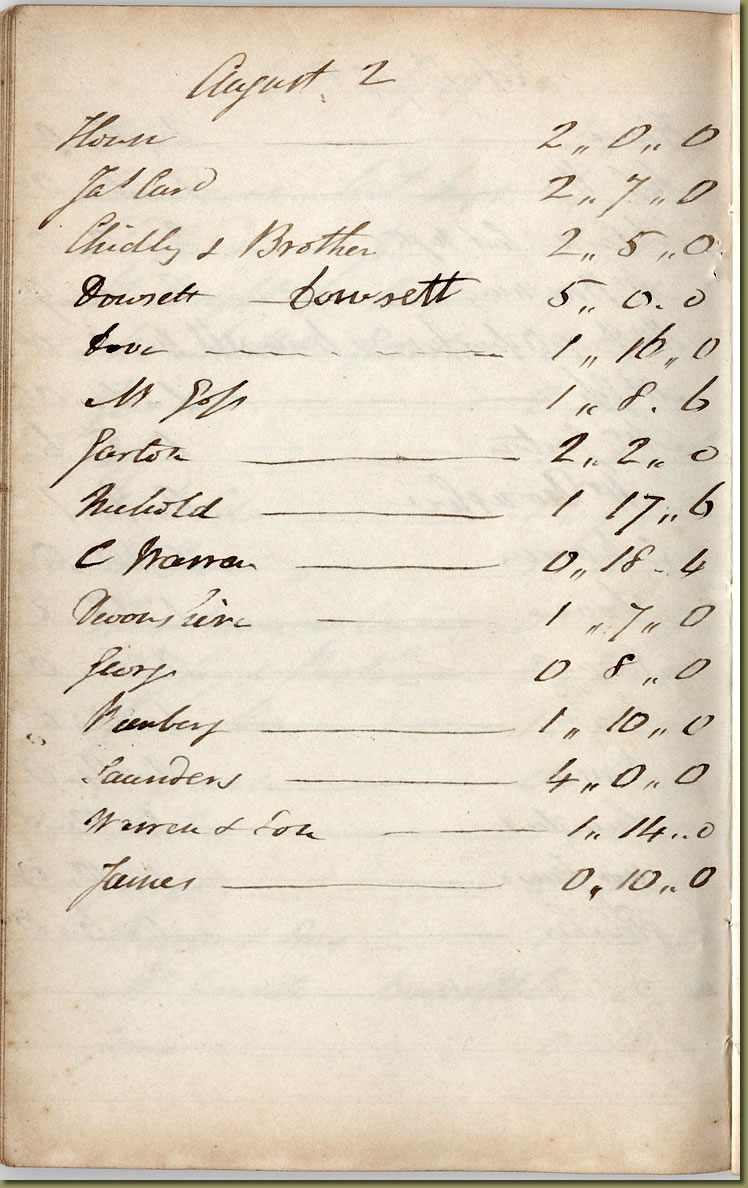 August 2
House 2 ,, 0 ,, 0
Jas Card 2 ,, 7 ,, 0
Chidley & Brother 2 ,, 5 ,, 0
Dowsett — Dowsett 5 ,, 0 . 0
Dove — — — — 1 ,, 16 ,, 0
Mr Goſs 1 ,, 8 . 6
Garton — 2 ,, 2 ,, 0
— 1 17 ,, 6
C Warren — 0 ,, 18 - 4
Devonshire — 1 ,, 7 ,, 0
George 0 8 ,, 0
— 1 ,, 10 ,, 0
Saunders — 4 ,, 0 ,, 0
Warren & Son — 1 ,, 14 ,, 0
James — 0 ,, 10 ,, 0